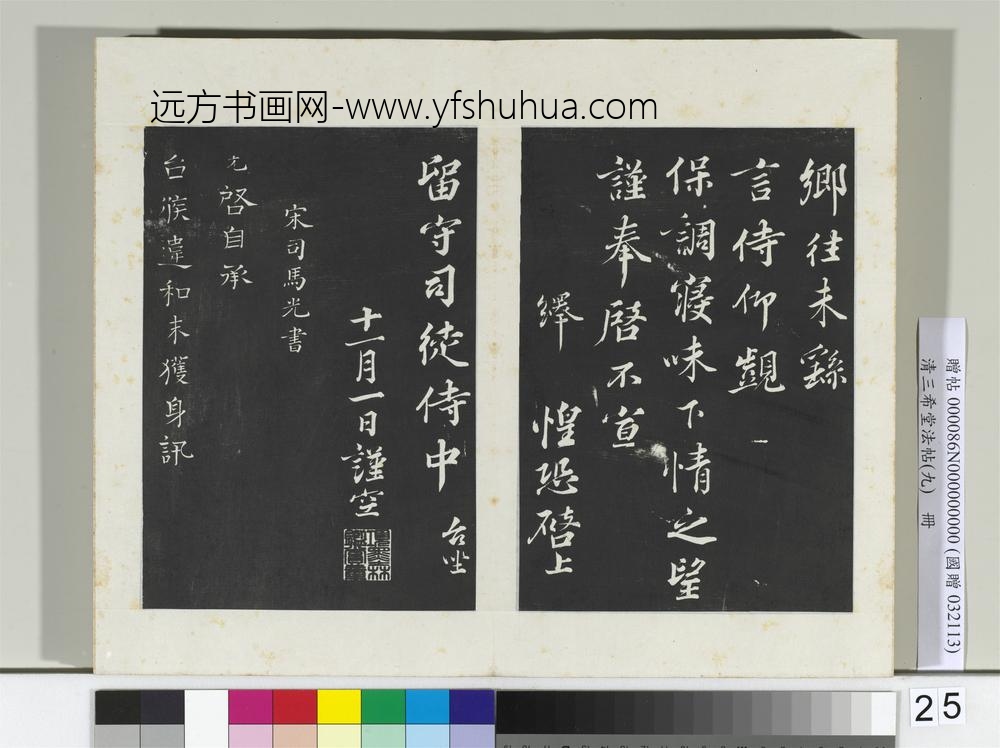 远方书画网-www.yfshuhua.com
鄉往未繇
言侍仰覬
保調寢味下情之望
謹奉啓不宣
繹 惶恐啓上
留守司徒侍中 台坐
十一月一日謹空
宋司馬光書
光啓自承
台候違和未獲身訊
贈帖 000086N000000000 (國贈 032113)
清三希堂法帖(九) 冊
25